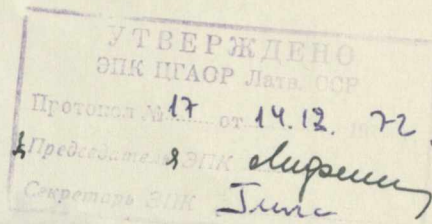 УТВЕРЖДЕНО
ЭПК ЦГАОР Латв. ССР
Протокол № 17 от 14.12. 72
Председатель ЭПК
Секретарь ЭПК